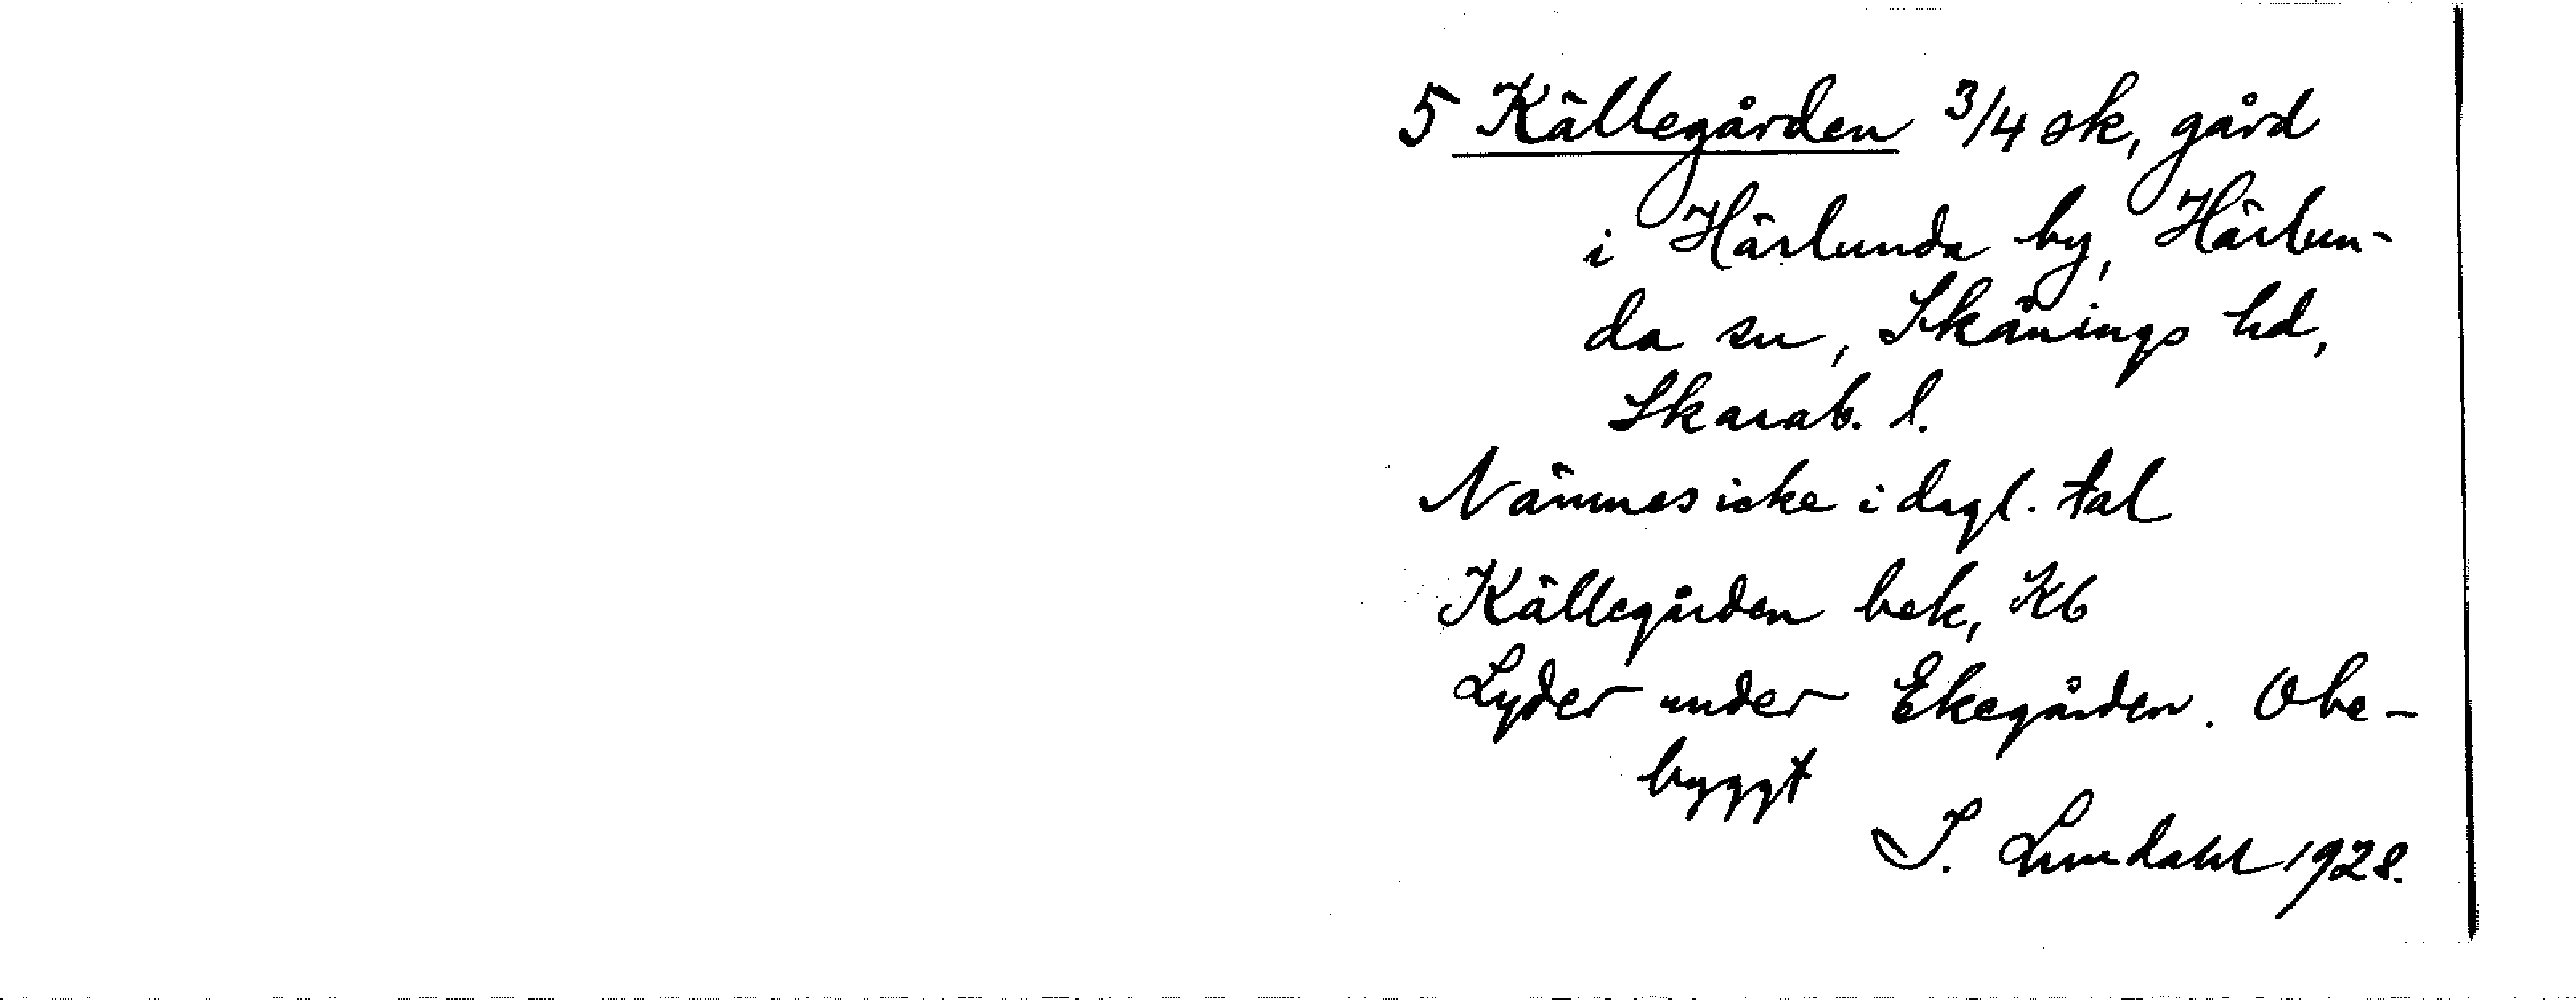 5 Källegården 3/4 sk, gård
i Härlunda by, Härlun-
da sn, Skånings hd,
Skarab. l.
Nämnes icke i dagl. tal
Källegården bek, Kb
Lyder under Ekegården. Obe-
byggt
I. Lundahl 1928.